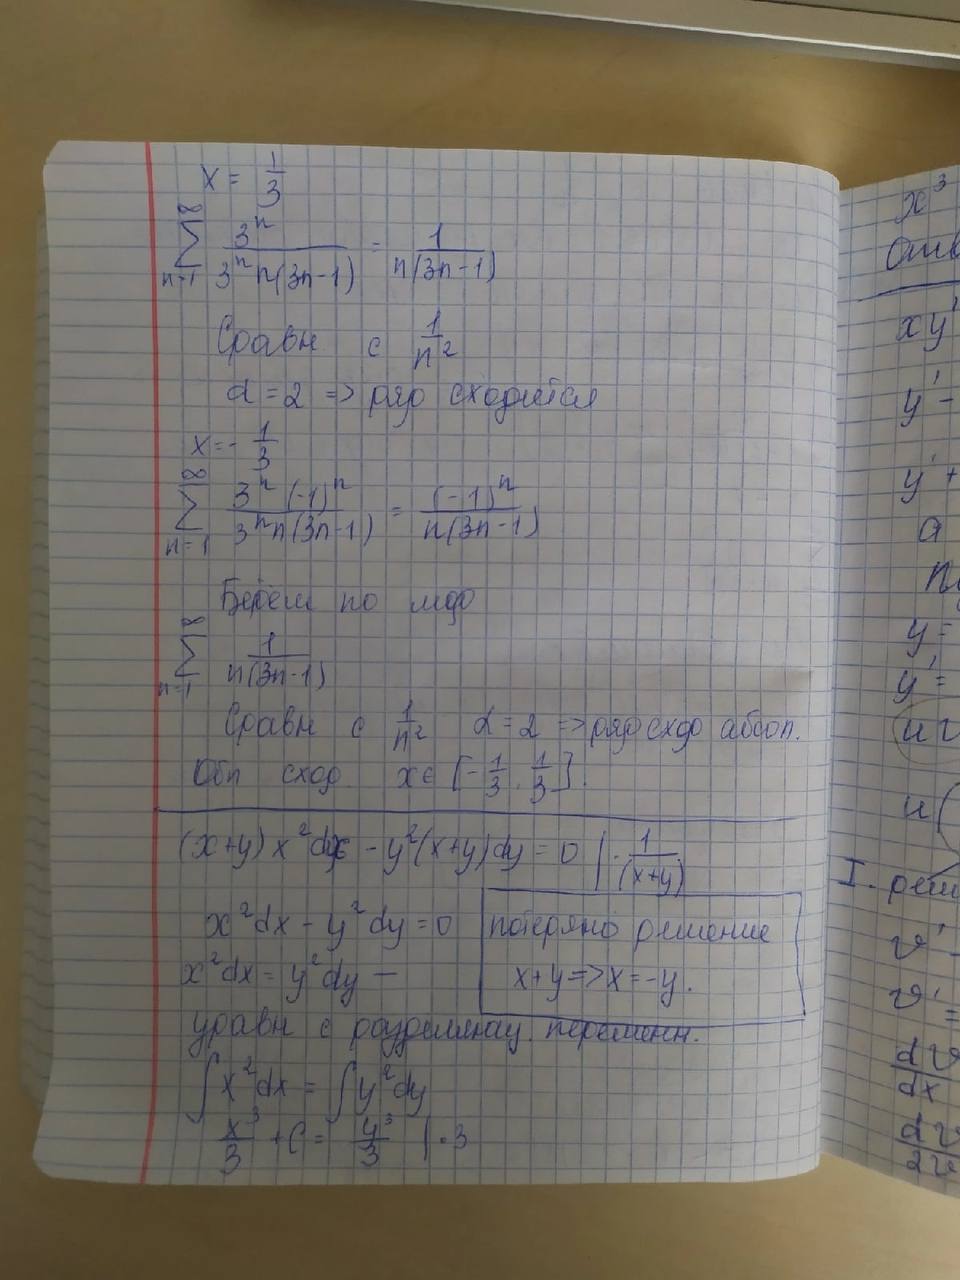 x = 1/3
∞ ∑ n=1 3^n / 3^n n(3n-1) = 1 / n(3n-1)
Сравн с 1/n^2
α = 2 => ряд сходится
x = - 1/3
∞ ∑ n=1 3^n (-1)^n / 3^n n(3n-1) = (-1)^n / n(3n-1)
Берём по мод
∞ ∑ n=1 1 / n(3n-1)
Сравн с 1/n^2 α = 2 => ряд сход абсол.
Обл сход x ∈ [-1/3, 1/3].
(x+y) x^2 dx - y^2 (x+y) dy = 0 | · 1/(x+y)
x^2 dx - y^2 dy = 0
потеряно решение
x^2 dx = y^2 dy —
x+y => x = -y.
уравн с переменн.
∫ x^2 dx = ∫ y^2 dy
x^3/3 + C = y^3/3 | · 3
x^3
xy'
y' -
y' +
a
y =
y' =
u(
I. реш
v' -
v' =
dv/dx